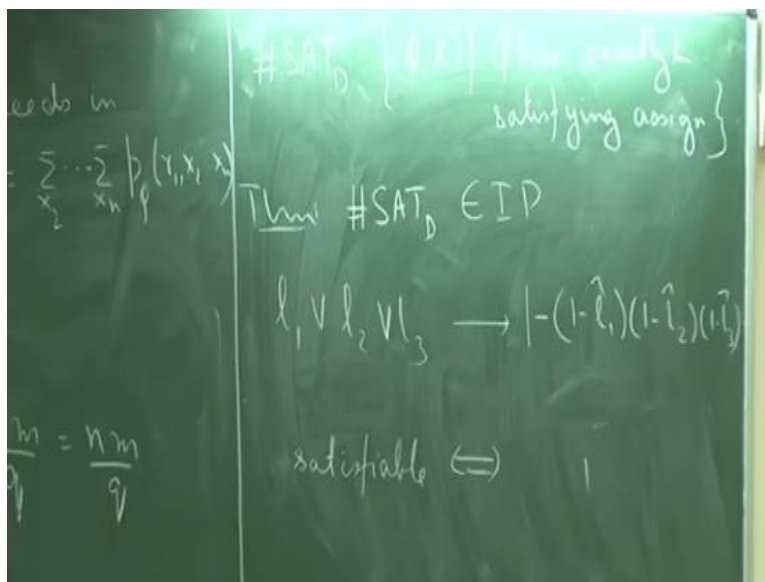 eeds in
= Σ_{x_2} ... Σ_{x_n} p_φ(x_1, x_2 x_n)
m/q = nm/q
#SAT_D = {(φ, K) |
satisfying assign}
Thm: #SAT_D ∈ IP
l_1 ∨ l_2 ∨ l_3 → 1-(1-l̂_1)(1-l̂_2)(1-l̂_3)
satisfiable ⟺ 1